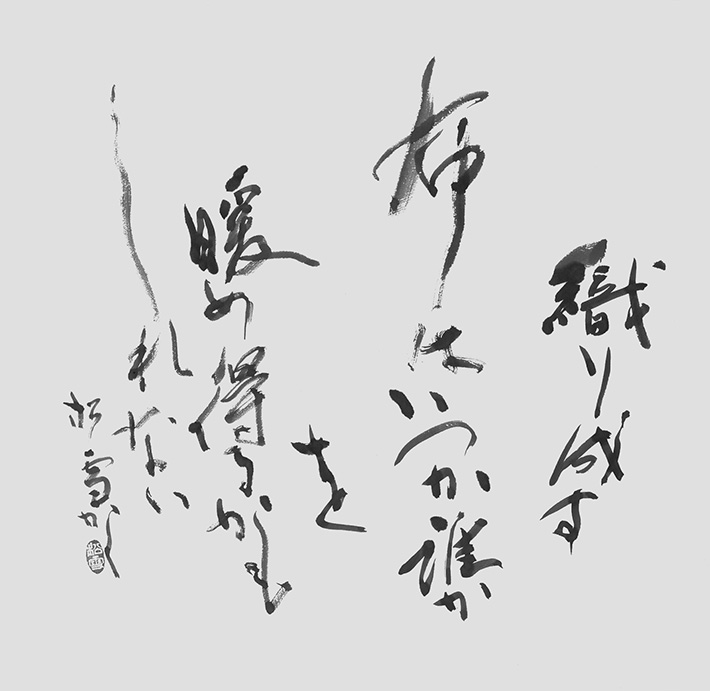 織り成す
布はいつか誰か
を
暖め得るかも
しれない
松雪かく